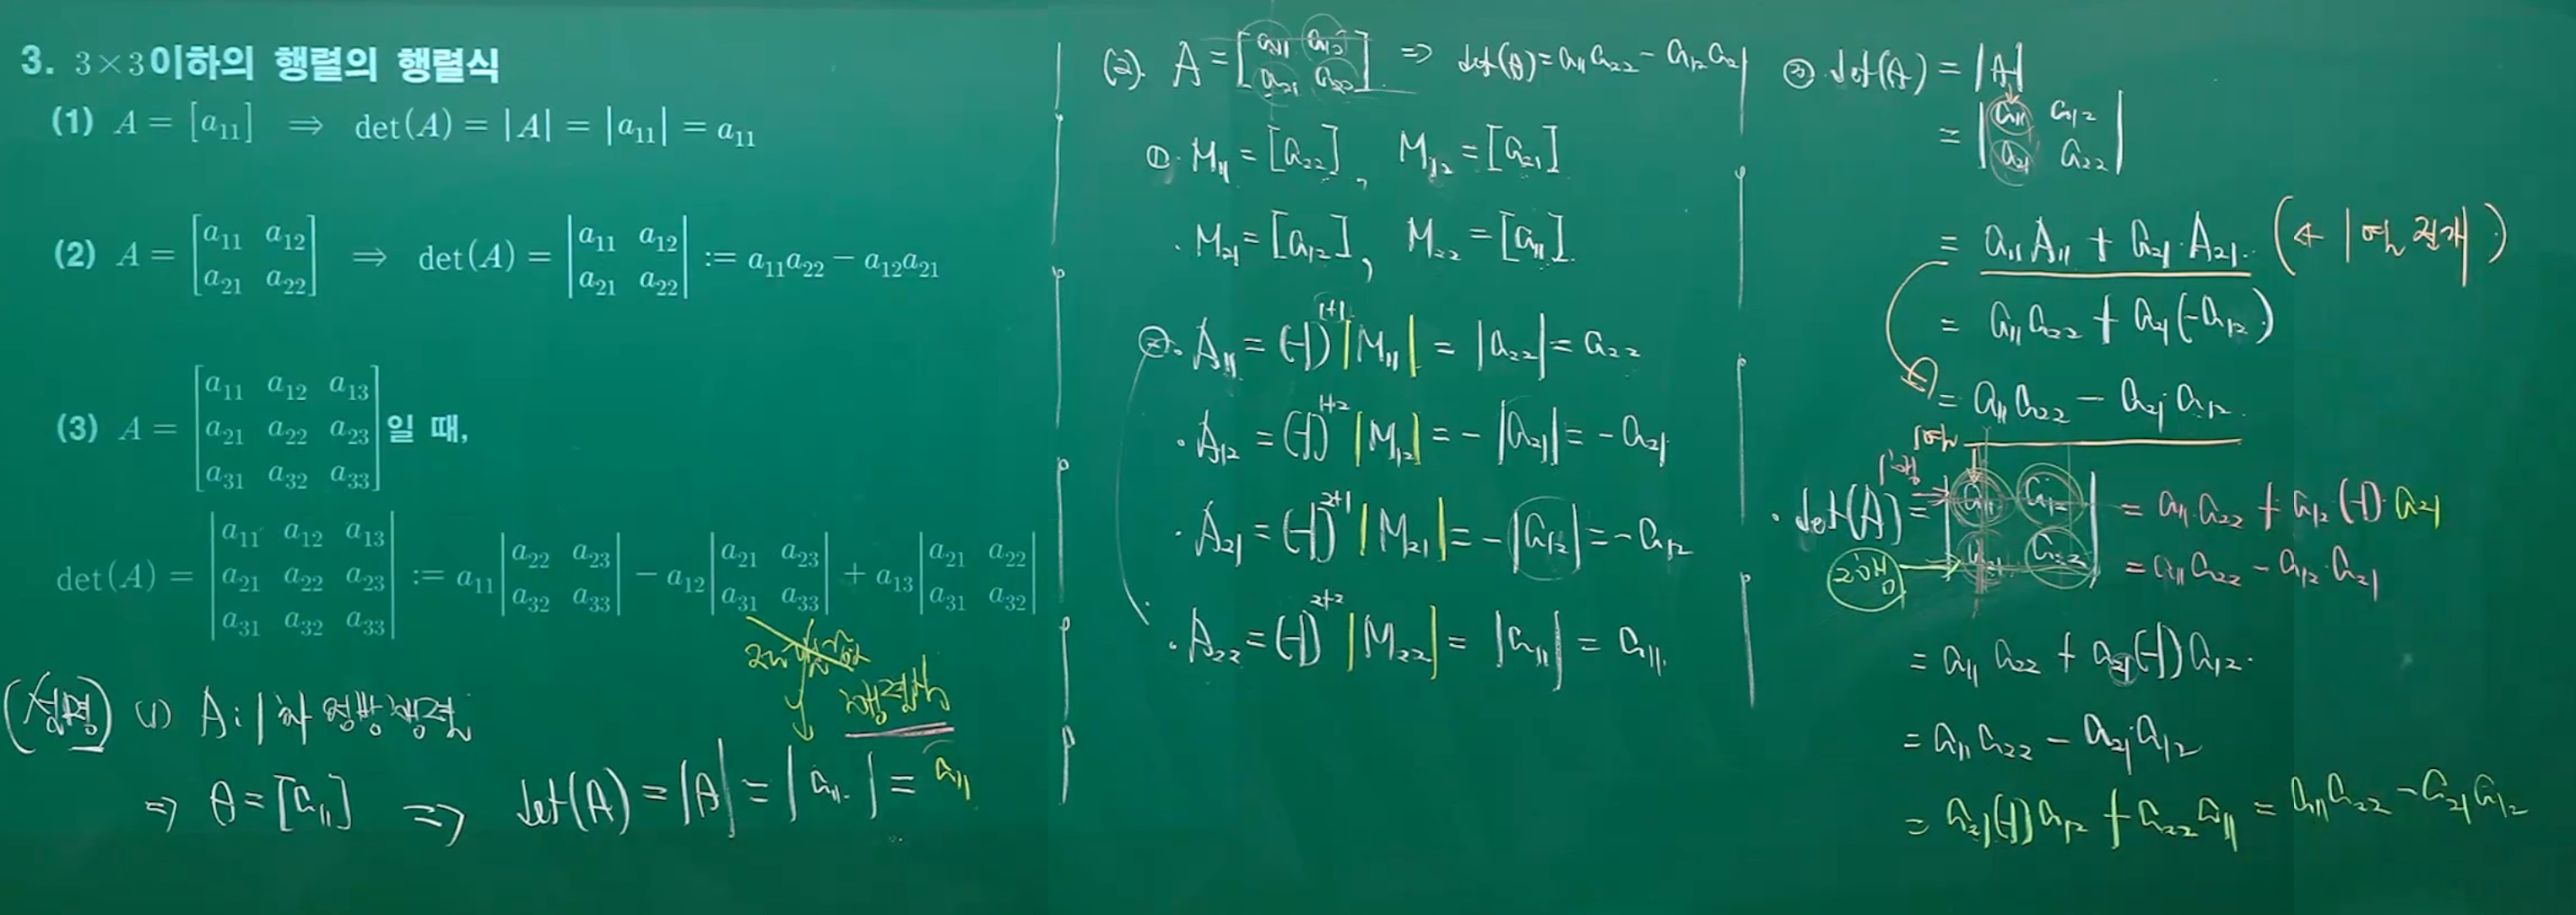 3. 3×3이하의 행렬의 행렬식
(1) A = [a₁₁] ⇒ det(A) = |A| = |a₁₁| = a₁₁
(2) A = [a₁₁ a₁₂
a₂₁ a₂₂] ⇒ det(A) = |a₁₁ a₁₂
a₂₁ a₂₂| := a₁₁a₂₂ − a₁₂a₂₁
(3) A = [a₁₁ a₁₂ a₁₃
a₂₁ a₂₂ a₂₃
a₃₁ a₃₂ a₃₃] 일 때,
det(A) = |a₁₁ a₁₂ a₁₃
a₂₁ a₂₂ a₂₃
a₃₁ a₃₂ a₃₃| := a₁₁|a₂₂ a₂₃
a₃₂ a₃₃| − a₁₂|a₂₁ a₂₃
a₃₁ a₃₃| + a₁₃|a₂₁ a₂₂
a₃₁ a₃₂|
행렬식
(설명) (1) A : 1차 정방행렬
⇒ A = [a₁₁] ⇒ det(A) = |A| = |a₁₁| = a₁₁
(2). A = [a₁₁ a₁₂
a₂₁ a₂₂] ⇒ det(A) = a₁₁a₂₂ − a₁₂a₂₁
①. M₁₁ = [a₂₂], M₁₂ = [a₂₁]
· M₂₁ = [a₁₂], M₂₂ = [a₁₁].
②. A₁₁ = (−1)¹⁺¹|M₁₁| = |a₂₂| = a₂₂
· A₁₂ = (−1)¹⁺²|M₁₂| = −|a₂₁| = −a₂₁
· A₂₁ = (−1)²⁺¹|M₂₁| = −|a₁₂| = −a₁₂
· A₂₂ = (−1)²⁺²|M₂₂| = |a₁₁| = a₁₁.
③. det(A) = |A|
= |a₁₁ a₁₂
a₂₁ a₂₂|
= a₁₁A₁₁ + a₂₁·A₂₁. (← 1열 전개)
= a₁₁a₂₂ + a₂₁(−a₁₂)
= a₁₁a₂₂ − a₂₁a₁₂.
1열
1행
· det(A) = |a₁₁ a₁₂
2행
a₂₁ a₂₂| = a₁₁·a₂₂ + a₁₂·(−1)·a₂₁
= a₁₁a₂₂ − a₁₂·a₂₁
= a₁₁a₂₂ + a₂₁(−1)a₁₂.
= a₁₁a₂₂ − a₂₁a₁₂
= a₂₁(−1)a₁₂ + a₂₂a₁₁ = a₁₁a₂₂ − a₂₁a₁₂